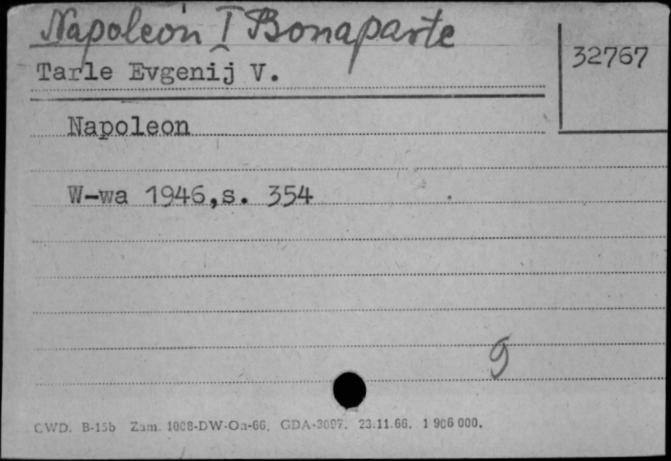 Napoleon I Bonaparte
32767
Tarle Evgenij V.
Napoleon
W-wa 1946,s. 354
9
CWD. B-15b Zam. 1008-DW-Oa-66. GDA-3097. 23.11.66. 1 906 000.